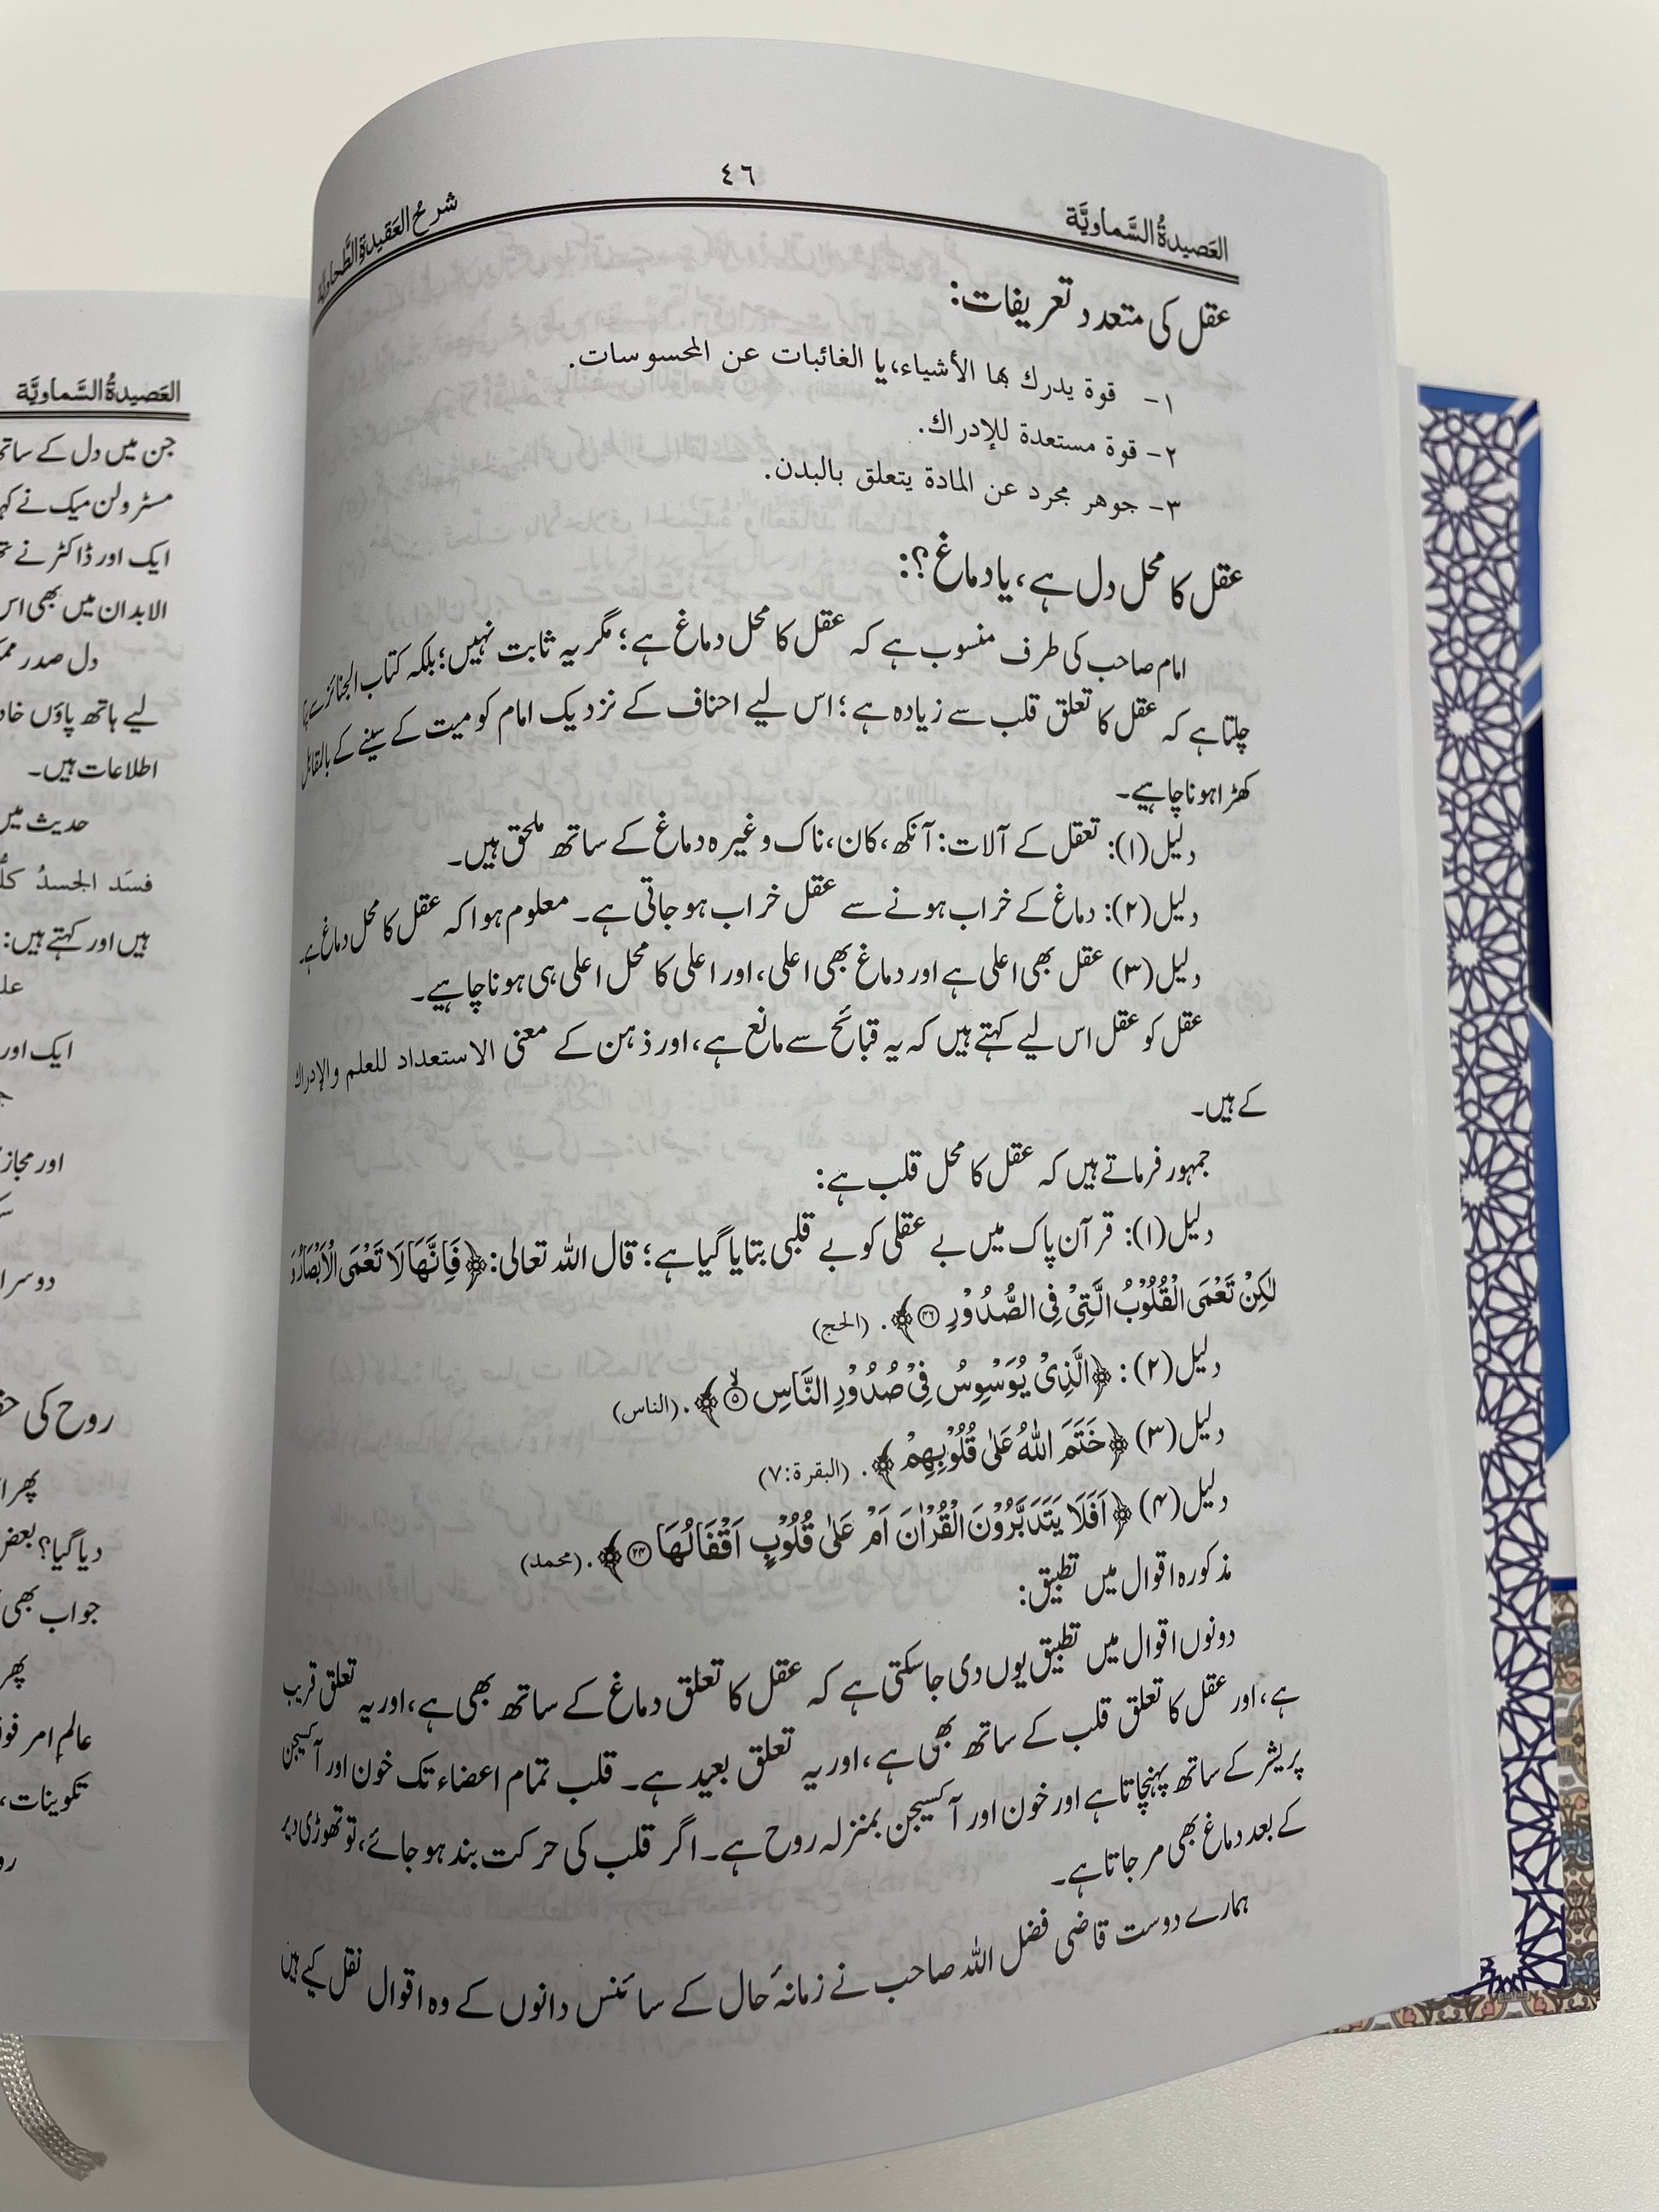 العَصيدةُ السَّماويَّة
٤٦
شرحُ العَقيدةِ الطَّحاويَّة
عقل کی متعدد تعریفات:
١- قوة يدرك بها الأشياء، یا الغائبات عن المحسوسات.
٢- قوة مستعدة للإدراك.
٣- جوهر مجرد عن المادة يتعلق بالبدن.
عقل کا محل دل ہے، یا دماغ؟:
امام صاحب کی طرف منسوب ہے کہ عقل کا محل دماغ ہے؛ مگر یہ ثابت نہیں؛ بلکہ کتاب الجنائز سے پتا
چلتا ہے کہ عقل کا تعلق قلب سے زیادہ ہے؛ اس لیے احناف کے نزدیک امام کو میت کے سینے کے بالمقابل
کھڑا ہونا چاہیے۔
دلیل(۱): تعقل کے آلات: آنکھ، کان، ناک وغیرہ دماغ کے ساتھ ملحق ہیں۔
دلیل(۲): دماغ کے خراب ہونے سے عقل خراب ہو جاتی ہے۔ معلوم ہوا کہ عقل کا محل دماغ ہے۔
دلیل(۳) عقل بھی اعلی ہے اور دماغ بھی اعلی، اور اعلی کا محل اعلی ہی ہونا چاہیے۔
عقل کو عقل اس لیے کہتے ہیں کہ یہ قبائح سے مانع ہے، اور ذہن کے معنی الاستعداد للعلم والإدراك
کے ہیں۔
جمہور فرماتے ہیں کہ عقل کا محل قلب ہے:
دلیل(۱): قرآن پاک میں بے عقلی کو بے قلبی بتایا گیا ہے؛ قال اللہ تعالی: ﴿فَاِنَّهَا لَا تَعْمَى الْاَبْصَارُ وَ
لٰكِنْ تَعْمَى الْقُلُوْبُ الَّتِیْ فِی الصُّدُوْرِ ۝۴۶﴾. (الحج)
دلیل(۲): ﴿الَّذِیْ یُوَسْوِسُ فِیْ صُدُوْرِ النَّاسِ ۝۵ۙ﴾. (الناس)
دلیل(۳) ﴿خَتَمَ اللّٰهُ عَلٰی قُلُوْبِهِمْ﴾. (البقرة:٧)
دلیل(۴) ﴿اَفَلَا یَتَدَبَّرُوْنَ الْقُرْاٰنَ اَمْ عَلٰی قُلُوْبٍ اَقْفَالُهَا ۝۲۴﴾. (محمد)
مذکورہ اقوال میں تطبیق:
دونوں اقوال میں تطبیق یوں دی جا سکتی ہے کہ عقل کا تعلق دماغ کے ساتھ بھی ہے، اور یہ تعلق قریب
ہے، اور عقل کا تعلق قلب کے ساتھ بھی ہے، اور یہ تعلق بعید ہے۔ قلب تمام اعضاء تک خون اور آکسیجن
پریشر کے ساتھ پہنچاتا ہے اور خون اور آکسیجن بمنزلہ روح ہے۔ اگر قلب کی حرکت بند ہو جائے، تو تھوڑی دیر
کے بعد دماغ بھی مر جاتا ہے۔
ہمارے دوست قاضی فضل اللہ صاحب نے زمانۂ حال کے سائنس دانوں کے وہ اقوال نقل کیے ہیں
العَصيدةُ السَّماويَّة
جن میں دل کے ساتھ
مسٹر ولن میک نے
ایک اور ڈاکٹر نے
الابدان میں بھی اس
دل صدر
لیے ہاتھ پاؤں
اطلاعات ہیں۔
حدیث میں
فسَد الجسدُ
ہیں اور کہتے ہیں:
ایک اور
اور مجاز
دوسرا
روح کی
پھر
دیا گیا؟ بعض
جواب بھی
پھر
عالم امر
تکوینات،